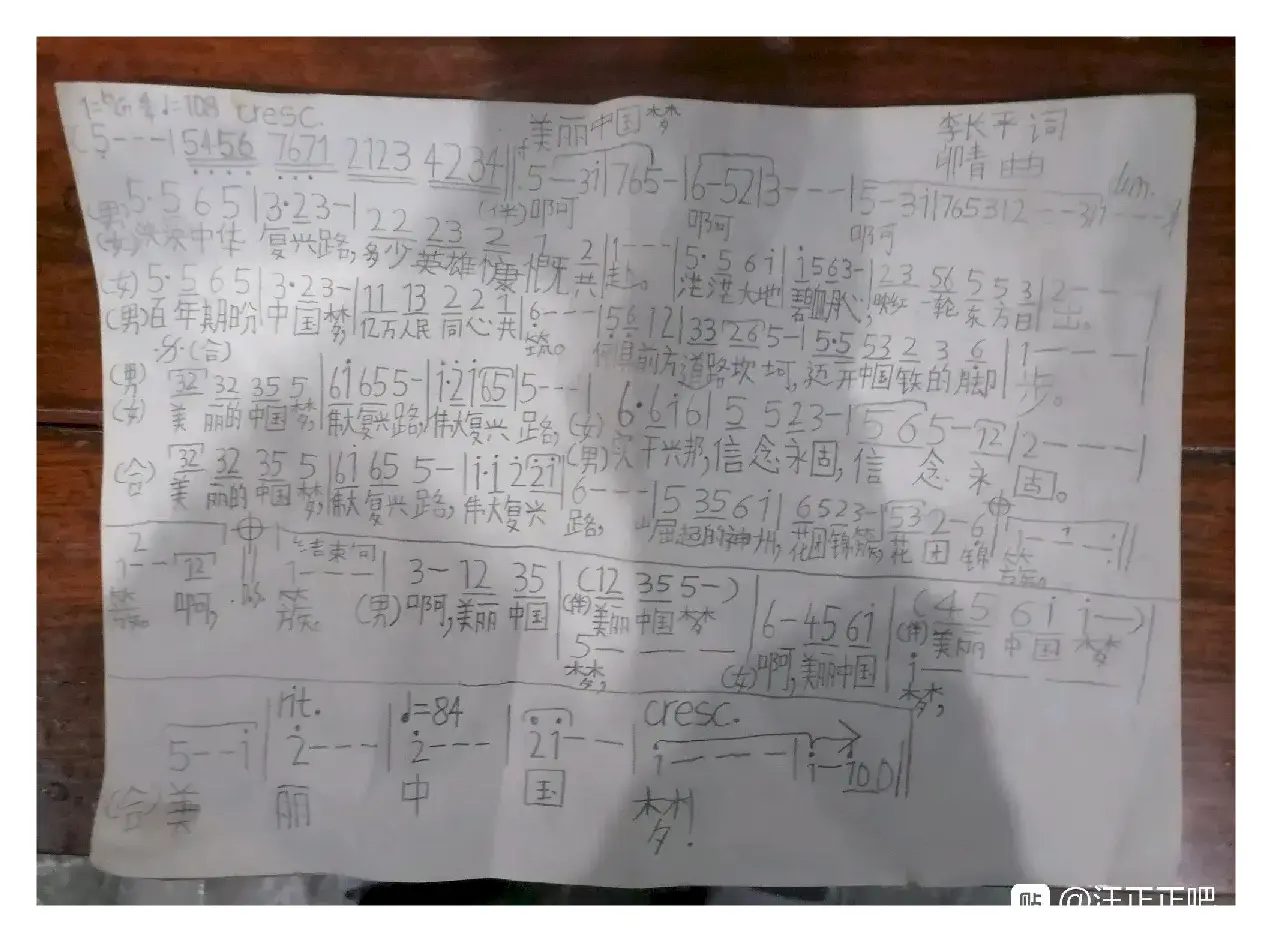 1=♭G 4/4 ♩=108 cresc.
美丽中国梦
李长平 词
印青 曲
(5---|5456 7671 2123 4234‖f 5--3i|765-|6-52|3---|5-3i|765312---3/1---
dim.
(伴)啊 啊 啊
(男)5·5 6 5|3·23-|22 23 2 7 2|1---|5·5 6 i|i563-|23 56 5 5 3|2---|
(女)泱泱中华 复兴路,多少英雄慷慨共赴。茫茫大地碧血丹心,映红一轮东方日出。
(女)5·5 6 5|3·23-|11 13 2 2 1|6---|56 12|33 26 5-|5·5 53 2 3 6|1---|
(男)百年期盼中国梦,亿万人民同心共筑。何惧前方道路坎坷,迈开中国铁的脚步。
𝄋(合)
(男)32 32 35 5|6i 655-|i·2i65|5---|6·6i6|5 523-|565-12|2---|
(女)美丽的中国梦,伟大复兴路,伟大复兴路,(女)
(男)实干兴邦,信念永固,信念永固。
(合)32 32 35 5|6i 65 5-|i·i 2 2i|6---|5 35 6 i|6523-|53 2-6|1---:‖
美丽的中国梦,伟大复兴路,伟大复兴路,崛起的神州,花团锦簇,花团锦簇。
2
1--12‖ 结束句 1---|3-12 35|(12 35 5-)|6-45 6i|(45 6i i-)|
簇。啊, D.S. 簇。(男)啊,美丽中国(伴)美丽中国梦
5---
梦,
(女)啊,美丽中国(伴)美丽中国梦
i---
梦,
rit. ♩=84 cresc.
5--i|2---|2---|2i--|i---|i-100‖
(合)美 丽 中 国 梦!
@汪正正吧